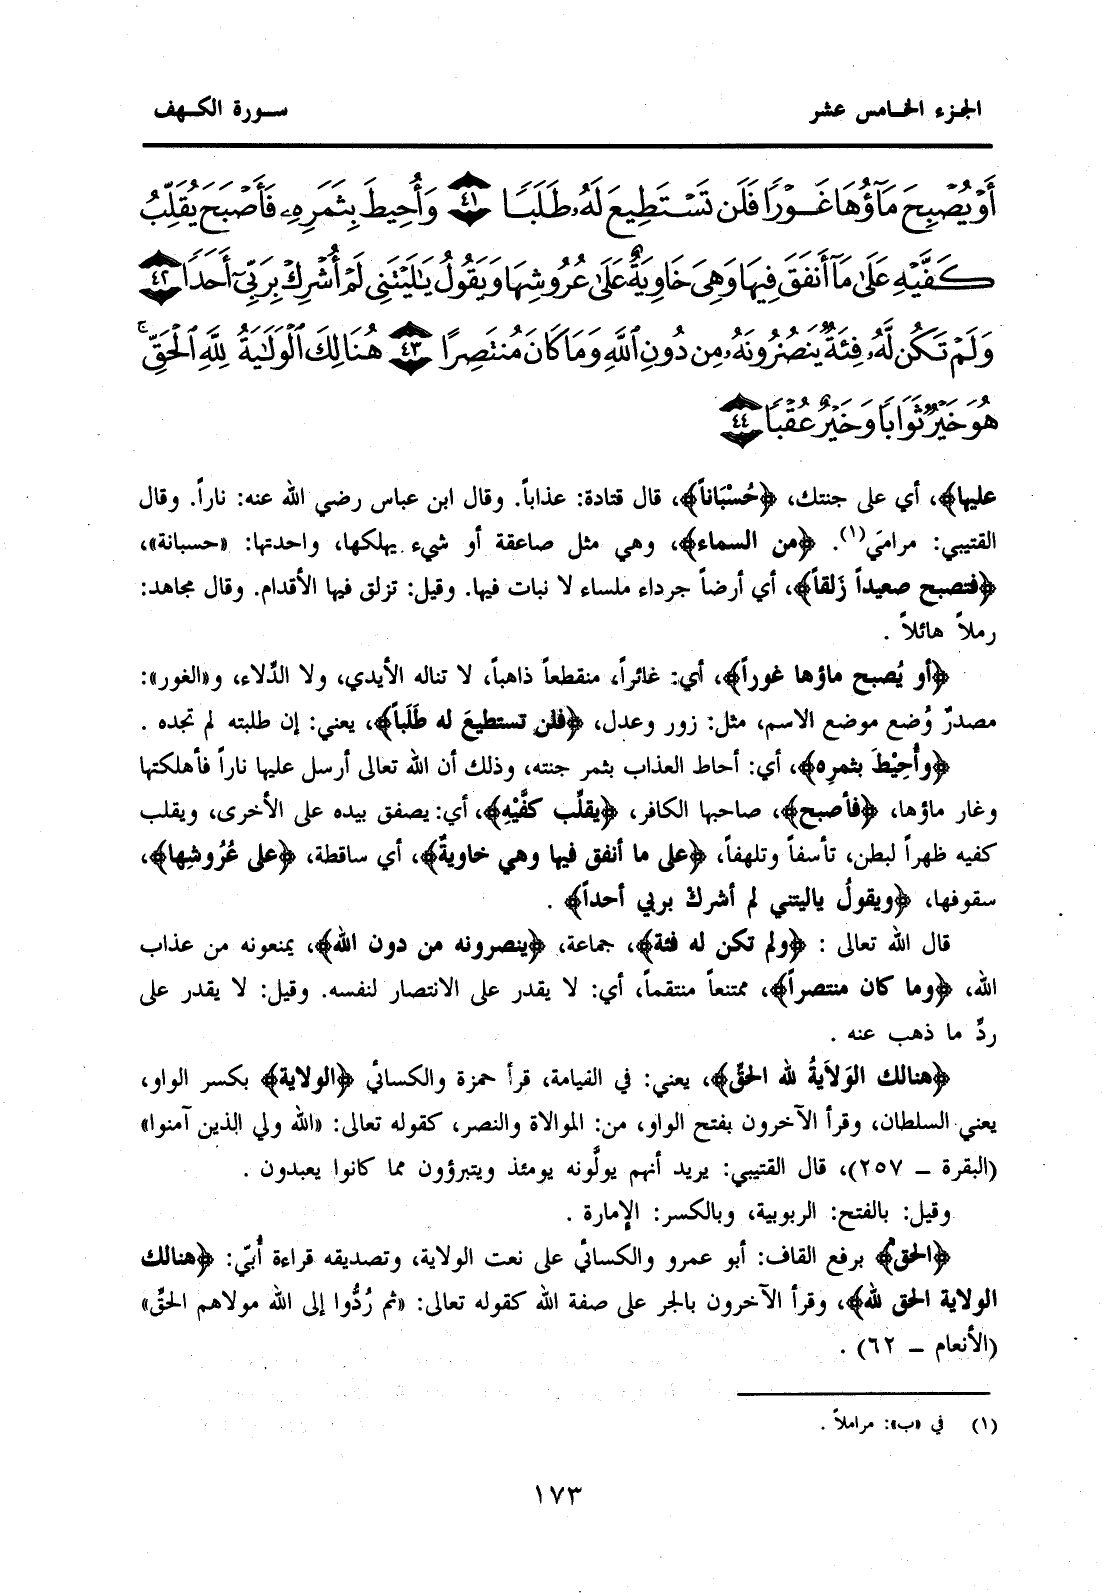 الجزء الخامس عشر
سورة الكهف
أَوْ يُصْبِحَ مَآؤُهَا غَوْرًا فَلَن تَسْتَطِيعَ لَهُۥ طَلَبًا ٤١ وَأُحِيطَ بِثَمَرِهِۦ فَأَصْبَحَ يُقَلِّبُ
كَفَّيْهِ عَلَىٰ مَآ أَنفَقَ فِيهَا وَهِىَ خَاوِيَةٌ عَلَىٰ عُرُوشِهَا وَيَقُولُ يَٰلَيْتَنِى لَمْ أُشْرِكْ بِرَبِّىٓ أَحَدًا ٤٢
وَلَمْ تَكُن لَّهُۥ فِئَةٌ يَنصُرُونَهُۥ مِن دُونِ ٱللَّهِ وَمَا كَانَ مُنتَصِرًا ٤٣ هُنَالِكَ ٱلْوَلَٰيَةُ لِلَّهِ ٱلْحَقِّ ۚ
هُوَ خَيْرٌ ثَوَابًا وَخَيْرٌ عُقْبًا ٤٤
عليها﴾، أي على جنتك، ﴿حُسْبَاناً﴾، قال قتادة: عذاباً. وقال ابن عباس رضي الله عنه: ناراً. وقال
القتيبي: مرامَي(١). ﴿من السماء﴾، وهي مثل صاعقة أو شيء يهلكها، واحدتها: «حسبانة»،
﴿فتصبح صعيداً زَلقاً﴾، أي أرضاً جرداء ملساء لا نبات فيها. وقيل: تزلق فيها الأقدام. وقال مجاهد:
رملاً هائلاً .
﴿أو يُصبح ماؤها غوراً﴾، أي: غائراً، منقطعاً ذاهباً، لا تناله الأيدي، ولا الدِّلاء، و«الغور»:
مصدرٌ وُضع موضع الاسم، مثل: زور وعدل، ﴿فلن تستطيعَ له طَلَباً﴾، يعني: إن طلبته لم تجده .
﴿وأُحِيْطَ بثمرِه﴾، أي: أحاط العذاب بثمر جنته، وذلك أن الله تعالى أرسل عليها ناراً فأهلكتها
وغار ماؤها، ﴿فأصبح﴾، صاحبها الكافر، ﴿يقلِّب كفَّيْهِ﴾، أي: يصفق بيده على الأخرى، ويقلب
كفيه ظهراً لبطن، تأسفاً وتلهفاً، ﴿على ما أنفق فيها وهي خاويةٌ﴾، أي ساقطة، ﴿على عُرُوشِها﴾،
سقوفها، ﴿ويقولُ ياليتني لم أشركْ بربي أحداً﴾ .
قال الله تعالى : ﴿ولم تكن له فئة﴾، جماعة، ﴿ينصرونه من دون الله﴾، يمنعونه من عذاب
الله، ﴿وما كان منتصراً﴾، ممتنعاً منتقماً، أي: لا يقدر على الانتصار لنفسه. وقيل: لا يقدر على
ردِّ ما ذهب عنه .
﴿هنالك الوَلاَيَةُ لله الحقِّ﴾، يعني: في القيامة، قرأ حمزة والكسائي ﴿الولاية﴾ بكسر الواو،
يعني السلطان، وقرأ الآخرون بفتح الواو، من: الموالاة والنصر، كقوله تعالى: «الله ولي الذين آمنوا»
(البقرة – ٢٥٧)، قال القتيبي: يريد أنهم يولَّونه يومئذ ويتبرؤون مما كانوا يعبدون .
وقيل: بالفتح: الربوبية، وبالكسر: الإمارة .
﴿الحقُّ﴾ برفع القاف: أبو عمرو والكسائي على نعت الولاية، وتصديقه قراءة أُبّي: ﴿هنالك
الولاية الحق لله﴾، وقرأ الآخرون بالجر على صفة الله كقوله تعالى: «ثم رُدُّوا إلى الله مولاهم الحقِّ»
(الأنعام – ٦٢) .
(١) في «ب»: مراملاً .
١٧٣